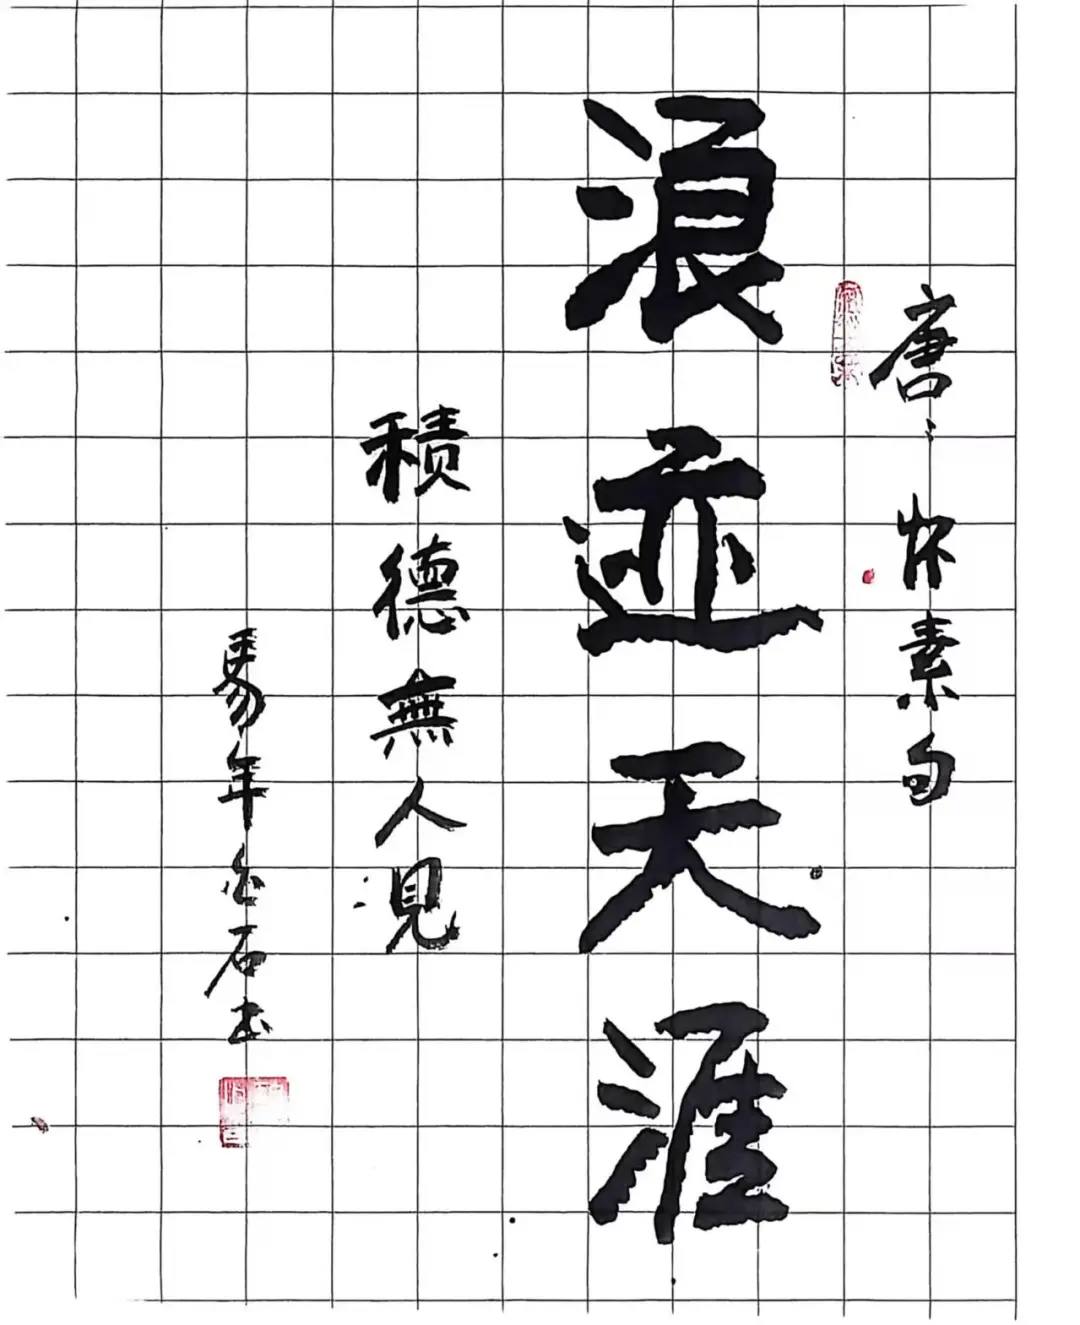 唐、怀素句
浪迹天涯
積德無人見
馬年白石书